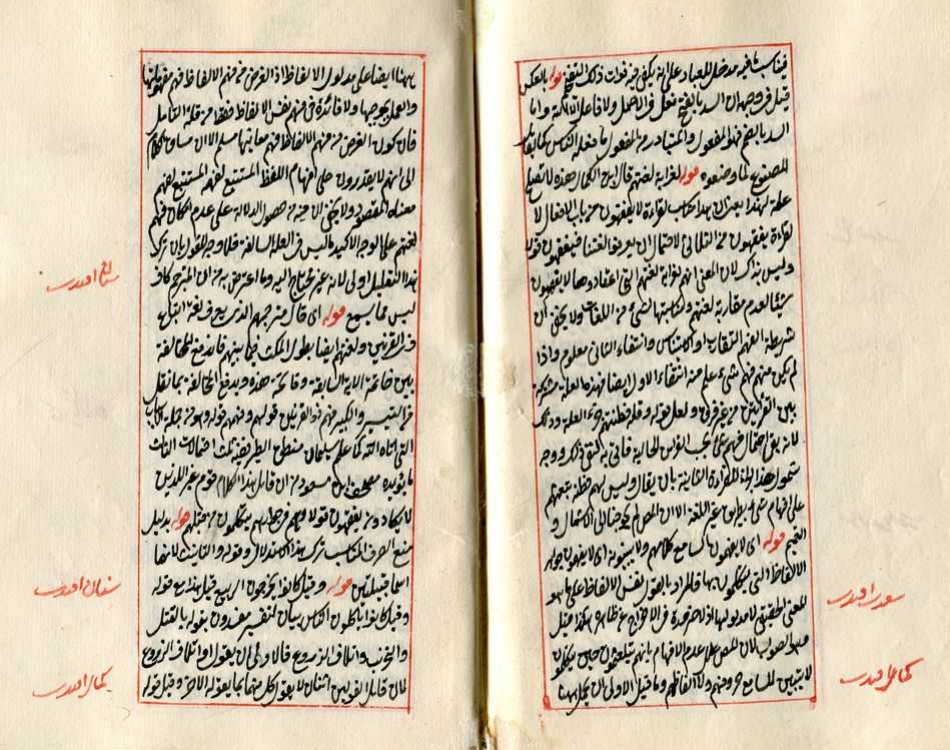 فيناسب ما فيه مدخل للعباد على انه يكفي فيه فوات ذلك التفخيم قوله بالعكس
قيل في وجهه ان السد بالفتح فعل في الاصل ولا فاعل واما
السد بالضم فهو المفعول والمتبادر من المفعول ما فعله الناس كما يقال
المصنوع لما وضعوه قوله لغرابة لغتهم قال ابن الكمال وهذه لا تصلح
علة لهذا يعني ان هذا يناسب لقراءة لا يفقهون من باب الافعال لا
لقراءة يفقهون من الثلاثي لاحتمال ان يعرفوا لغتنا فيفقهون
وليس بذاك لان المعنى انهم لغرابة لغتهم التي اعتادوها لا يفقهون
شيئا لعدم مقاربة لغتهم ومناسبتها لشئ من اللغات ولا يخفى ان
شرط الفهم التقارب او التناسب وانتفاء الثاني معلوم واذا
لم يكن منهم فهم شئ علم من انتفاء الاول ايضا فهذه العلة مشتركة
بين القرائتين من غير فرق ولعل قوله وقلة فطنتهم جزء العلة وذلك
لانه بقي احتمال فهم بحسب القرائن الحالية فاتى به لنفي ذلك ووجه
شمول هذا للقراءة الثانية بان يقال وليس لهم فطنة تبعثهم
على افهام شئ بطريق غير اللغة الا ان المص لم يحتج الى الاشمال و
التعميم قوله اى لا يفهمون السامع كلامهم ولا يبينونه اى لا يفهمون بجوهر
الالفاظ التي يتكلمون بها فالمراد بالقول نفس الالفاظ على ما هو
المعنى الحقيقي لا مدلولها اذ لا ضرورة في الاخراج عن ظاهره هكذا قيل
وهو الصواب لان المص علل عدم الافهام بانهم حين يتكلمون
لا يتبين للسامع حروفهم ولا الفاظهم وما قيل الاولى ان يحمل هذا
سعدى افندى
كمال افندى
ههنا ايضا على مدلول الالفاظ اذ الغرض من فهم الالفاظ فهم مفهوماتها
والعمل بموجبها ولا فائدة في فهم نفس الالفاظ فقط من قلة التامل
فان كون الغرض من فهم الالفاظ فهم معانيها مسلم الا ان مساق الكلام
الى انهم لا يقدرون على افهام اللفظ المستتبع لفهمه المستتبع لفهم
معناه المقصود ولا يخفى ان فيه من حصول الدلالة على عدم امكان فهم
لغتهم على الوجه الاكيد ما ليس في العلة السالفة فلا وجه للقول بان ترك
هذا التعليل اولى لانه غير محتاج اليه وما اعترض به من ان المترجم كاف
ليس مما يسمع قوله اى قال مترجمهم الذي يعرف لغة
ذى القرنين ولغتهم ايضا بطول المكث فيما بينهم فاندفع المخالفة
بين خاتمة الاية السابقة وفاتحة هذه ويدفع المخالفة بما نقل
في التيسير والكبير من فهم ذى القرنين قولهم وفهمهم قوله وهو من جملة الاسباب
التي اتاه الله كما علم سليمان منطق الطير فقيه ثلث احتمالات الثالث
ما يؤيده مصحف ابن مسعود من ان قائل هذا الكلام قوم غير الذين
لا يكادون يفقهون قولا وهم قوم يتكلمون من قبلهم قوله بدليل
منع الصرف المناسب ترك هذا الاستدلال وقوله والتانيث لانهما
اسما قبيلتين قوله وقيل كانوا يخرجون الربيع قيل هذا مع قوله
وقيل كانوا ياكلون الناس بيان لتفسير مفسدون بقوله بالقتل
والتخريب واتلاف الزروع فالاولى ان يقول او اتلاف الزروع
لان قائل القولين اثنان لا يقول كل منهما بما يقوله الاخر وقيل قوله
سنان افندى
كمال افندى